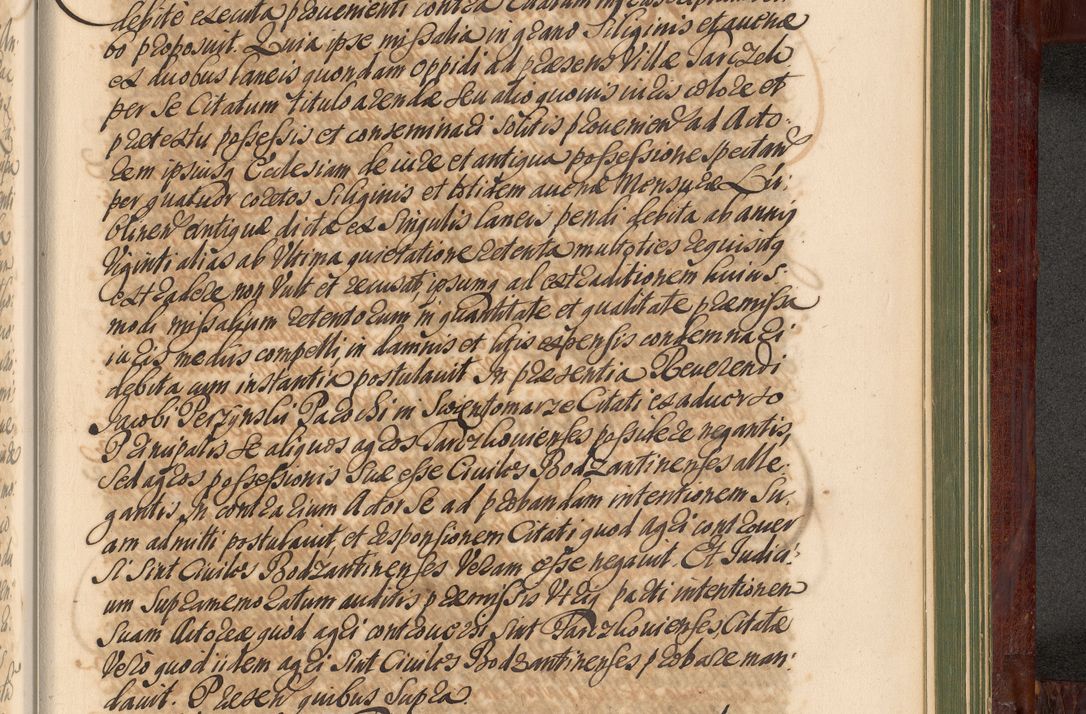 debite executa provenienti contra Citatum
bo proposuit. Quia ipse missalia in grano Siliginis et avenæ
ex duobus laneis quondam Oppidi ad præsens Villæ Tarczek
per se Citatum titulo arendæ seu alio quovis iuris colore et
prætextu possessis et conseminari solitis provenien ad Acto-
rem ipsiusq Ecclesiam de iure et antiqua possessione spectan
per quatuor coretos Siliginis et totidem avenæ Mensuræ Lu-
blinen antiquæ dictæ ex Singulis laneis pendi debita ab annis
Viginti alias ab Ultima quietatione retenta multoties requisitq
extradere non Vult et recusat, ipsumq ad extraditionem huius-
modi missalium retentorum in quantitate et qualitate præmissa
iuris mediis compelli, in damnis et litis expensis condemnari
debita cum instantia postulavit. In præsentia Reverendi
Jacobi Perzynski Parochi in Swientomarze Citati ex adverso
Principalis se aliquos agros Tarczkovienses possidere negantis,
Sed agros possessionis suæ esse Civiles Bodzantinenses alle-
gantis. In contrarium Actor se ad probandam intentionem Su-
am admitti postulavit, et responsionem Citati quod agri controver
Si Sint Civiles Bodzantinenses Veram esse negavit. Et Judici-
um Supramemoratum auditis præmissis Utriq parti intentionem
Suam Actoreæ quod agri controversi sint Tarczkovienses Citatæ
Vero quod iidem agri Sint Civiles Bodzantinenses probare man-
davit. Præsen quibus Supra.